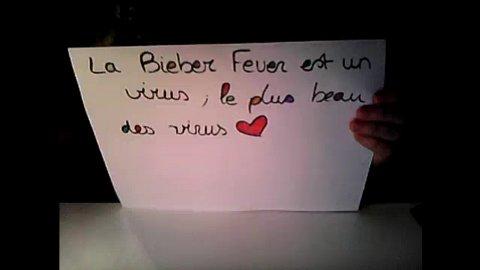 La Bieber Fever est un
virus ; le plus beau
des virus